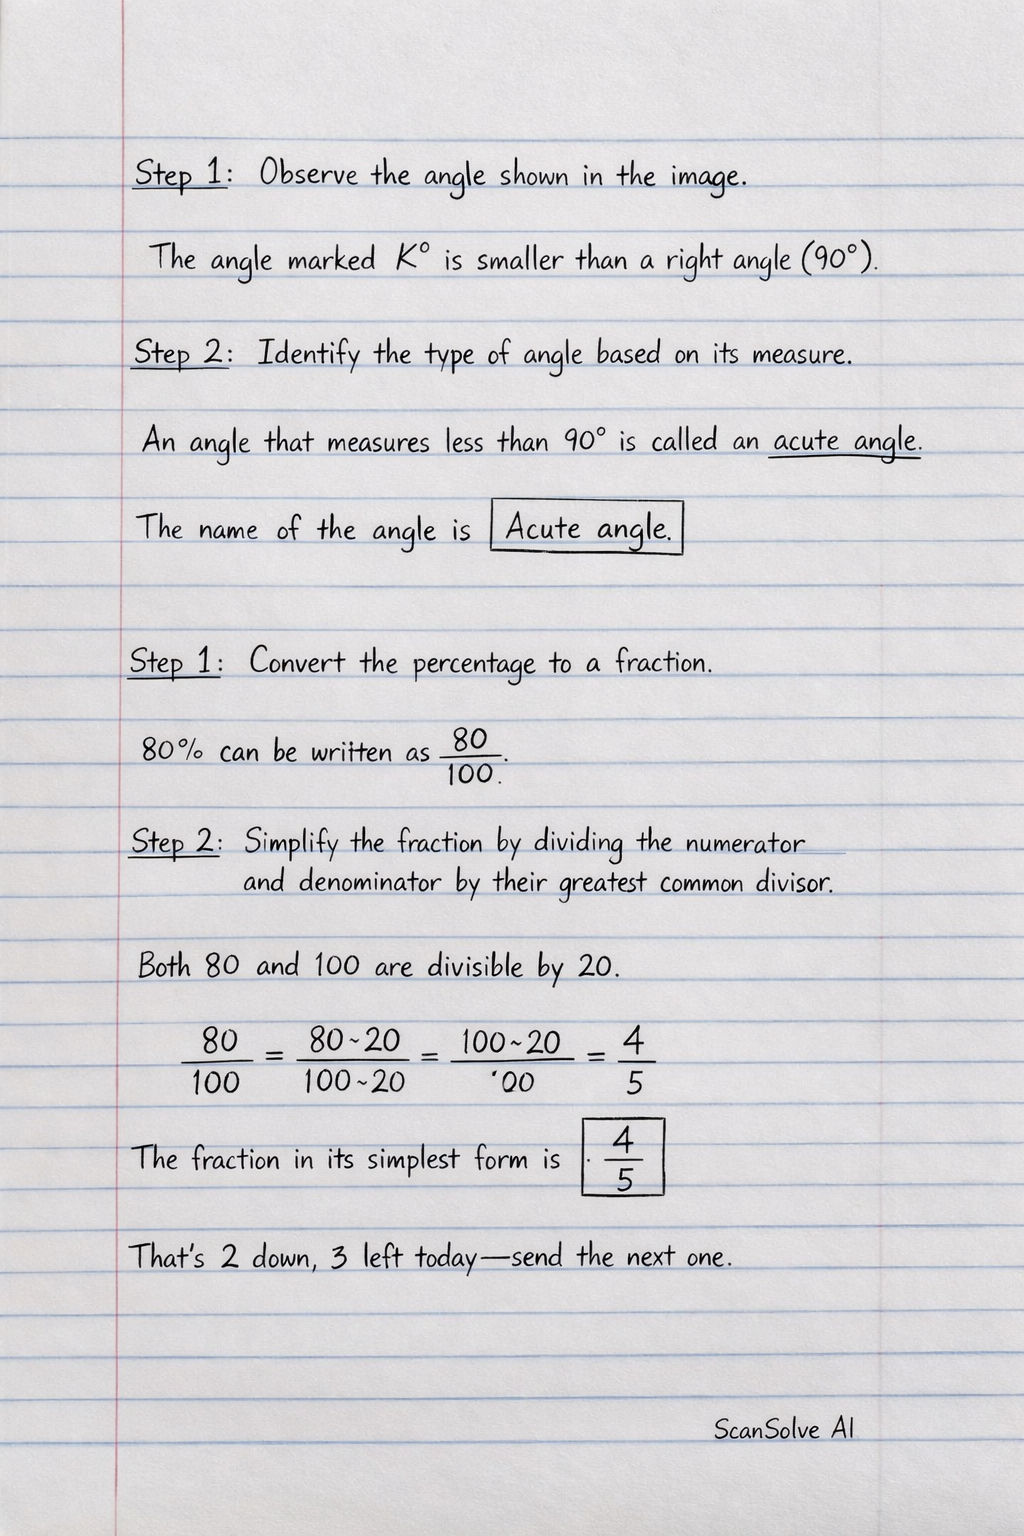 Step 1: Observe the angle shown in the image.
The angle marked K° is smaller than a right angle (90°).
Step 2: Identify the type of angle based on its measure.
An angle that measures less than 90° is called an acute angle.
The name of the angle is Acute angle.
Step 1: Convert the percentage to a fraction.
80% can be written as 80/100.
Step 2: Simplify the fraction by dividing the numerator
and denominator by their greatest common divisor.
Both 80 and 100 are divisible by 20.
80/100 = 80~20/100~20 = 100~20/'00 = 4/5
The fraction in its simplest form is 4/5
That's 2 down, 3 left today—send the next one.
ScanSolve AI